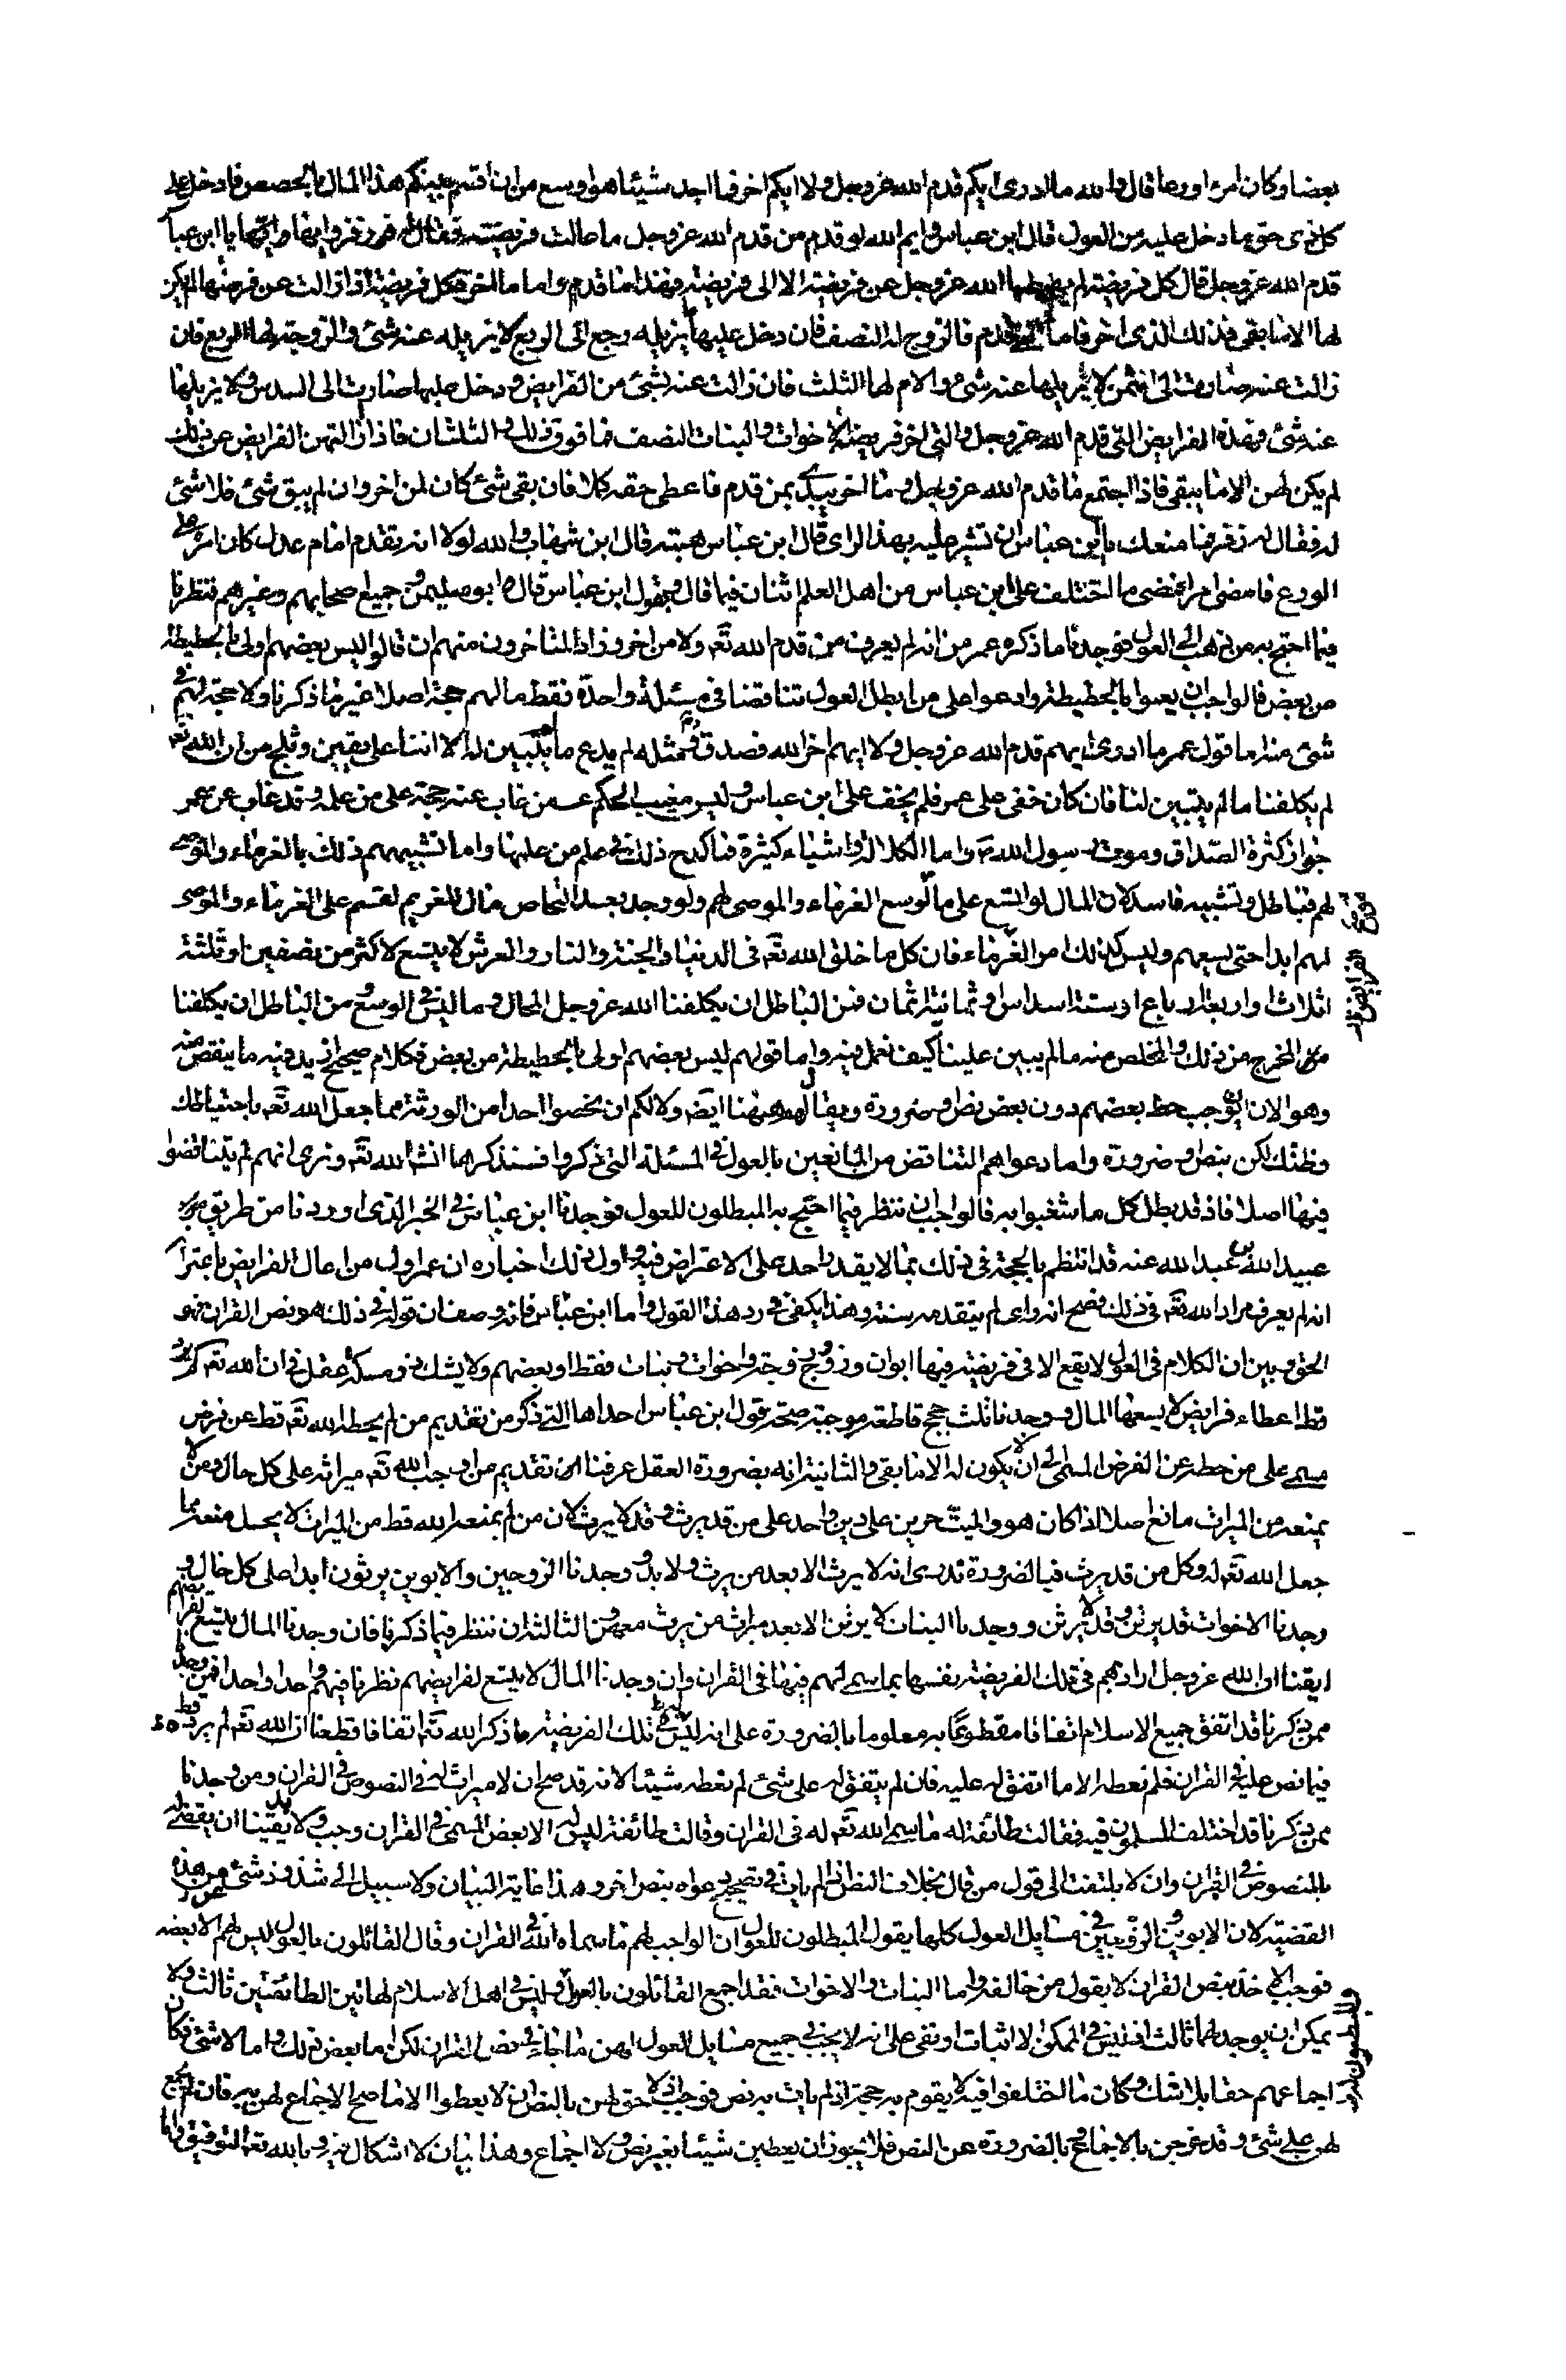 بعضا وكان امرءا ورعا قال والله ما ادرى ايكم قدم الله عز وجل ولا ايكم اخر فما اجد شيئا هو اوسع من ان اقسم بينكم هذا المال بالحصص فادخل على
كل ذى حق ما دخل عليه من العول قال ابن عباس وايم الله لو قدم من قدم الله عز وجل ما عالت فريضته فقال له زفر وايها يا ابن عباس
قدم الله عز وجل قال كل فريضة لم يهبطها الله عز وجل عن فريضة الا الى فريضة فهذا ما قدم واما ما اخر فكل فريضة اذا زالت عن فرضها لم يكن
لها الا ما بقى فذلك الذى اخر فاما الذى قدم فالزوج له النصف فان دخل عليه ما يزيله رجع الى الربع لا يزيله عنه شئ والزوجة لها الربع فان
زالت عنه صارت الى الثمن لا يزيلها عنه شئ والام لها الثلث فان زالت عنه بشئ من الفرايض ودخل عليها صارت الى السدس لا يزيلها
عنه شئ فهذه الفرايض التى قدم الله عز وجل والتى اخر فريضة الاخوات والبنات النصف فما فوق ذلك والثلثان فاذا ازالتهن الفرايض عن ذلك
لم يكن لهن الا ما يبقى فاذا اجتمع ما قدم الله عز وجل وما اخر بدئ بمن قدم فاعطى حقه كملا فان بقى شئ كان لمن اخر وان لم يبق شئ فلا شئ
له فقال له زفر فما منعك يا ابن عباس ان تشير عليه بهذا الراى قال ابن عباس هبته قال ابن شهاب والله لولا انه تقدمه امام عدل كان امره على
الورع فامضى امرا فمضى ما اختلف على ابن عباس من اهل العلم اثنان فيما قال وبقول ابن عباس قال ابو سليمن وجميع اصحابهم وغيرهم فنظرنا
فيما احتج به من ذهب الى العول فوجدنا ما ذكره عمر من انه لم يعرف من قدم الله تعه ولا من اخر وزاد المتاخرون منهم ان قالوا ليس بعضهم اولى بالحطيطة
من بعض فالواجب ان يعموا بالحطيطة وادعوا على من ابطل العول تناقضا فى مسئلة واحدة فقط ما لهم حجة اصلا غير ما ذكرنا ولا حجة لهم فى
شئ منه اما قول عمر ما ادرى ايهم قدم الله عز وجل ولا ايهم اخر الله فصدق ومثله لم يدع ما لم يتبين له الا اننا على يقين وثلج من ان الله تعه
لم يكلفنا ما لم يتبين لنا فان كان خفى على عمر فلم يخف على ابن عباس وليس مغيب الحكم عمن غاب عنه حجة على من علمه وقد غاب عن عمر
جواز كثرة الصداق وموت رسول الله صم واما الكلالة واشياء كثيرة فما كدح ذلك فى علم من علمها واما تشبيههم ذلك بالغرماء والموصى
لهم فباطل وتشبيه فاسد لان المال لو اتسع على ما هو لوسع الغرماء والموصى لهم ولو وجد بعد التحاص مال للغريم لقسم على الغرماء والموصى
لهم ابدا حتى يسعهم وليس كذلك امر الغرماء فان كل ما خلق الله تعه فى الدنيا والجنة والنار والعرش لا يتسع لاكثر من نصفين او ثلثة
اثلاث او اربعة ارباع او ستة اسداس او ثمانية اثمان فمن الباطل ان يكلفنا الله عز وجل المحال وما ليس فى الوسع ومن الباطل ان يكلفنا
من المخرج من ذلك والمخلص منه ما لم يبين علينا كيف نعمل فيه واما قولهم ليس بعضهم اولى بالحطيطة من بعض فكلام صحيح ان زيد فيه ما ينقص منه
وهو الا ان يوجب حط بعضهم دون بعض نص او ضرورة ويقال لهم ههنا ايضه ولا لكم ان تخصوا احدا من الورثة مما جعل الله تعه باحتياطك
وظنك لكن بنص او ضرورة واما دعواهم التناقض من المانعين بالعول فى المسئلة التى ذكروا فسنذكرها انشاء الله تعه ونرى انهم لم يتناقضوا
فيها اصلا فاذ قد بطل كل ما شغبوا به فالواجب ان ننظر فيما احتج به المبطلون للعول فوجدنا ابن عباس فى الخبر الذى اوردنا من طريق
عبيد الله بن عبد الله عنه قد انتظم بالحجة فى ذلك بما لا يقدر احد على الاعتراض فيه واول ذلك اخباره ان عمر اول من اعال الفرايض باعترا
انه لم يعرف مراد الله تعه فى ذلك فصح انه راى لم يتقدمه سنة وهذا يكفى فى رد هذا القول واما ابن عباس فانه وصف ان قوله فى ذلك هو نص القران فهو
الحق وبين ان الكلام فى العول لا يقع الا فى فريضة فيها ابوان وزوج وزوجة واخوات وبنات فقط او بعضهم ولا يشك ذو مسكة عقل فى ان الله تعه لم يرد
قط اعطاء فرايض لا يسعها المال ووجدنا ثلث حجج قاطعة موجبة صحة قول ابن عباس احداها التى ذكر من تقديم من لم يحطه الله تعه قط عن فرض
مسمى على من حطه عن الفرض المسمى الى ان لا يكون له الا ما بقى والثانية انه بضرورة العقل عرفنا ان تقديم من اوجب الله تعه ميراثه على كل حال ومن لا
يمنعه من الميراث مانع اصلا اذا كان هو والميت حرين على دين واحد على من قد يرث وقد لا يرث لان من لم يمنعه الله قط من الميراث لا يحل منعه مما
جعل الله تعه له وكل من قد يرث فبالضرورة ندرى انه لا يرث الا بعد من يرث ولا بد ووجدنا الزوجين والابوين يرثون ابدا على كل حال و
وجدنا الاخوات قد يرثن وقد لا يرثن ووجدنا البنات لا يرثن الا بعد ميراث من يرث معهن والثالثة ان ننظر فيما ذكرنا فان وجدنا المال يتسع لفرايضهم
ايقنا ان الله عز وجل ارادهم فى تلك الفريضة نفسها بما سمى لهم فيها فى القران وان وجدنا المال لا يتسع لفرايضهم نظرنا فيهم واحدا واحدا فمن وجدنا
ممن ذكرنا قد اتفق جميع الاسلام اتفاقا مقطوعا به معلوما بالضرورة على انه ليس له فى تلك الفريضة ما ذكر الله تعه اتفاقا قطعنا ان الله تعه لم يرد قط
فيما نص عليه فى القران فلم نعطه الا ما اتفق له عليه فان لم يتفق له على شئ لم نعطه شيئا لانه قد صح ان لا ميراث له فى النصوص فى القران ومن وجدنا
ممن ذكرنا قد اختلف المسلمون فيه فقالت طائفة له ما سمى الله تعه له فى القران وقالت طائفة ليس له الا بعض المسمى فى القران وجب ولا بد يقينا ان يقضى له
بالمنصوص فى القران وان لا يلتفت الى قول من قال بخلاف النص اذ لم يات فى تصحيح دعواه بنص اخر وهذا غاية البيان ولا سبيل الى شذوذ شئ عن هذه
القضية لان الابوين والزوجين فى مسايل العول كلها يقول المبطلون للعول ان الواجب لهم ما سماه الله فى القران وقال القائلون بالعول ليس لهم الا بعضه
فوجب الاخذ بنص القران لا بقول من خالفه واما البنات والاخوات فقد اجمع القائلون بالعول وليس فى اهل الاسلام لهاتين الطائفتين ثالث ولا
يمكن ان يوجد لهما ثالث اذ ليس فى الممكن الا اثبات او نفى على انه لا يجب فى جميع مسايل العول لهن ما جاء فى نص القران لكن اما بعض ذلك واما لا شئ فكان
اجماعهم حقا بلا شك وكان ما اختلفوا فيه لا يقوم به حجة اذ لم يات به نص فوجب اذ لا حق لهن بالنص ان لا يعطوا الا ما صح الاجماع لهن به فان لم يجمع
لهن على شئ وقد خرجن بالاجماع وبالضرورة عن النص فلا يجوز ان يعطين شيئا بغير نص ولا اجماع وهذا بيان لا اشكال فيه وبالله تعه التوفيق واما